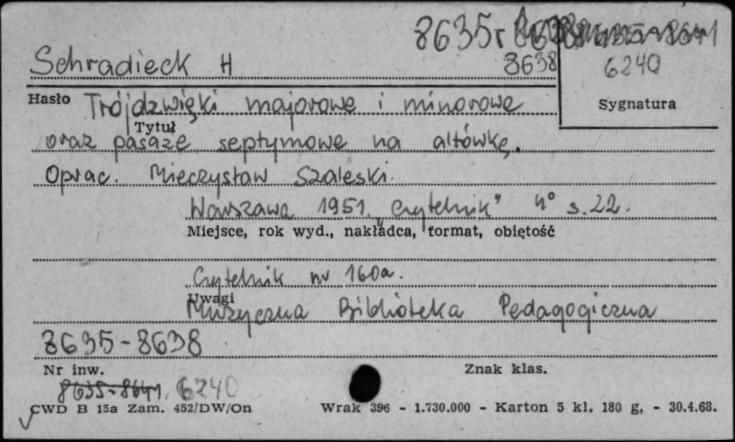 8635
Schradieck H
8638
6240
Hasło
Trójdzwięki majorowe i minorowe
Sygnatura
Tytuł
oraz pasaże septymowe na altówkę.
Oprac. Mieczysław Szaleski.
Warszawa 1951 "Czytelnik" 4° s.22.
Miejsce, rok wyd., nakładca, format, obiętość
Czytelnik nr 160a.
Uwagi
Muzyczna Biblioteka Pedagogiczna
8635-8638
Nr inw.
Znak klas.
8635-8641, 6240
CWD B 15a Zam. 452/DW/On
Wrak 396 - 1.730.000 - Karton 5 kl. 180 g, - 30.4.68.